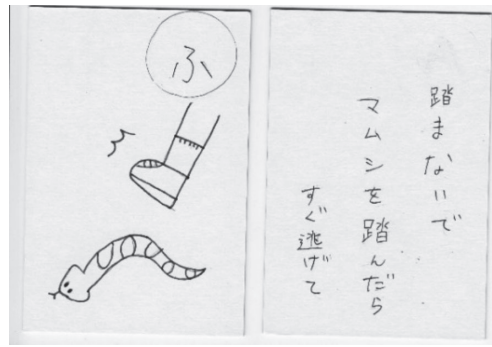 ふ
踏まないで
マムシを踏んだら
すぐ逃げて